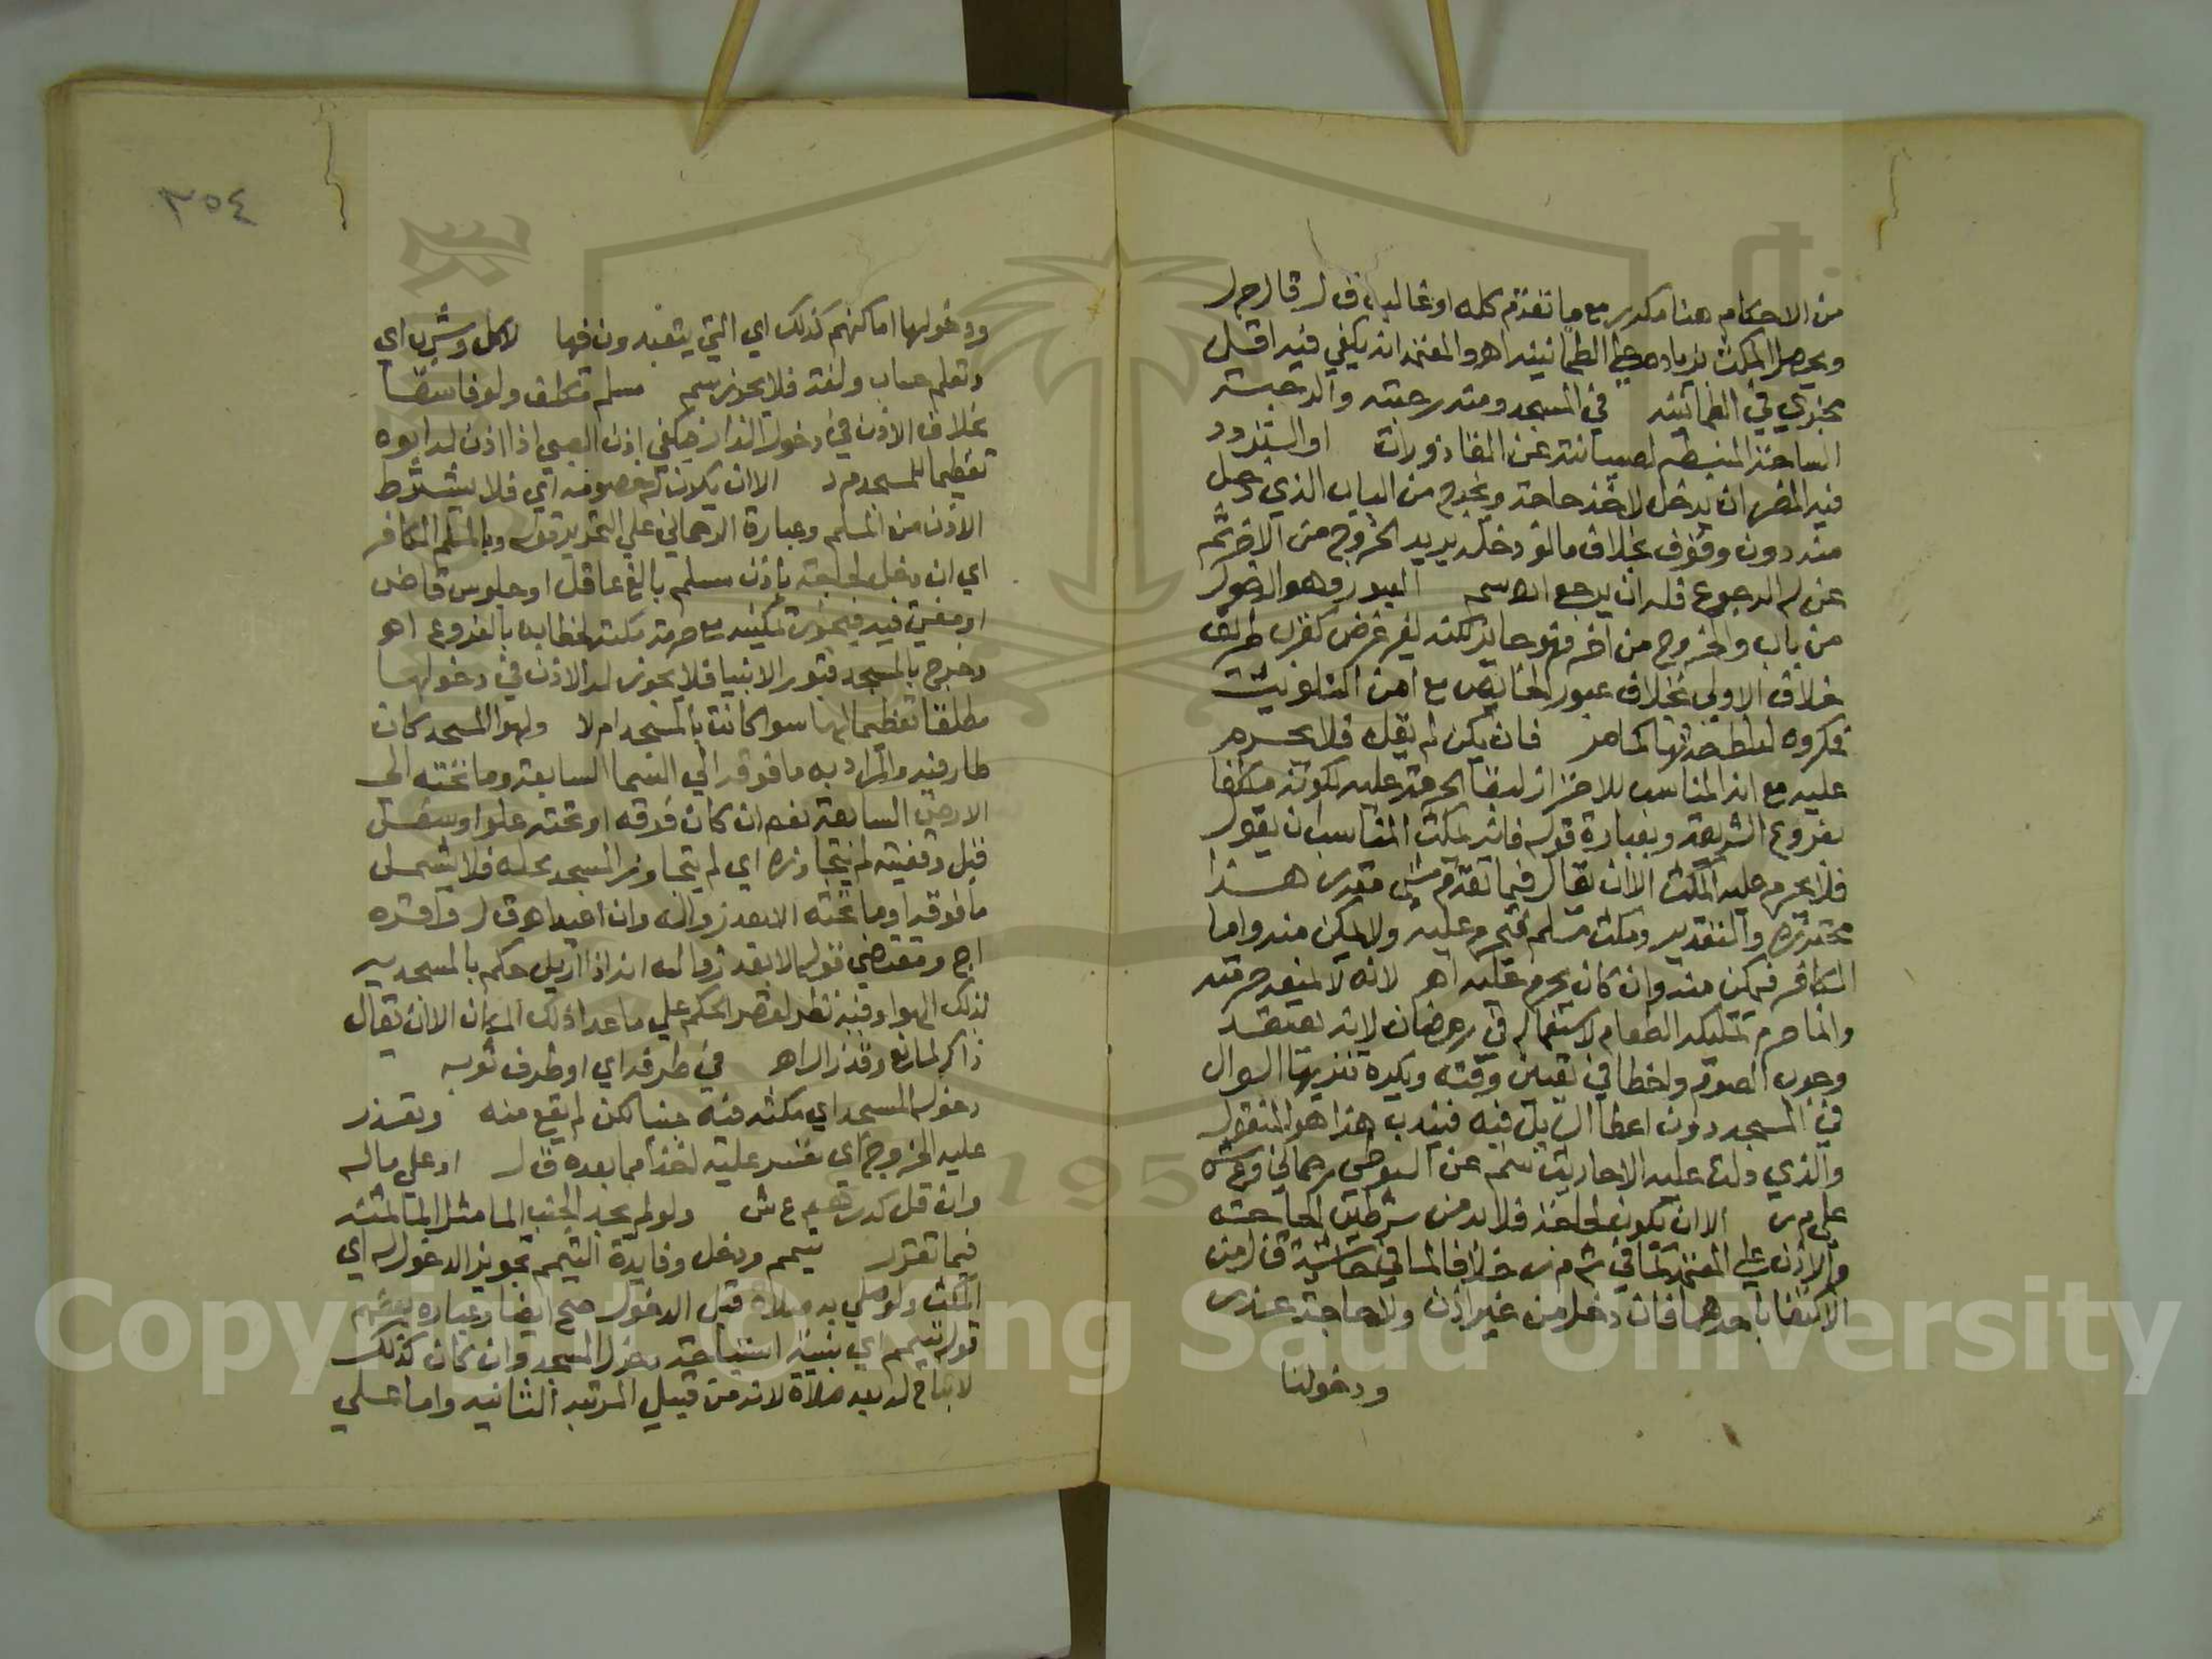 من الاحكام هنا مكرر مع ما تقدم كله او غالبه ق ل قال م ر
ويحصل المكث بزيادة على الطمانينه اهـ والمعتمد انه يكفي فيه اقل
مجزي في الطمانينه في المسجد ومنه رحبته والرحبة
الساحة المنبسطه لصيانته عن القاذورات او التردد
فيه المضر ان يدخل لاخذ حاجة ويخرج من الباب الذي دخل
منه دون وقوف بخلاف ما لو دخله يريد الخروج من الاخر ثم
عن له الرجوع فله ان يرجع اهـ سم العبور وهو الدخول
من باب والخروج من اخر فهو جايز لكنه لغير غرض كقرب طريق
خلاف الاولى بخلاف عبور الحايض مع امن التلويث
فمكروه لغلظ حدثها كما مر فان يكن لم يقل فلا يحرم
عليه مع انه المناسب للاحتراز لبقا الحرمة عليه لكونه مكلفا
بفروع الشريعة وبعبارة قوله فانه يمكث المناسب ان يقول
فلا يحرم عليه المكث الا ان يقال فيما تقدم شي مقدر هذا
محترزه والتقدير ومكث مسلم فيحرم عليه ولا يمكن منه واما
الكافر فيمكن منه وان كان يحرم عليه اهـ لانه لا يعتقد حرمته
وانما حرم تمليكه الطعام لاستعماله في رمضان لانه يعتقد
وجوب الصوم واخطا في تعيين وقته ويكره تنزيها السوال
في المسجد دون اعطا السايل فيه فيندب هذا هو المنقول
والذي دلت عليه الاحاديث ثمة عن السيوطي رحماني وع ش
على م ر الا ان يكون لحاجة فلا بد من شرطين الحاجة
والاذن على المعتمد كما في ش م ر خلافا لما في حاشية ق ل من
الاكتفا باحدهما فان دخل من غير اذن ولا حاجة عزر
ودخولنا
٣٥٤
ودخولها اماكنهم كذلك اي التي يتعبدون فيها لاكل وشرب اي
وتعلم حساب ولغة فلا يجوز سم مسلم مكلف ولو فاسقا
بخلاف الاذن في دخول الدار فيكفي اذن الصبي اذا اذن له ابوه
تعظيما للمسجد م د الا ان يكون له خصومة اي فلا يشترط
الاذن من المسلم وعبارة الرحماني على التحرير قوله وبالمسلم الكافر
اي ان دخل لحاجة باذن مسلم بالغ عاقل او جلوس قاض
او مفتي فيه فيجوز تمكينه مع حرمة مكثه لخطابه بالفروع اهـ
وخرج بالمسجد قبور الانبيا فلا يجوز له الاذن في دخولها
مطلقا تعظيما لها سوا كانت بالمسجد ام لا ولهوا المسجد كان
طار فيه والمراد به ما فوقه الى السما السابعة وما تحته الى
الارض السابعة نعم ان كان فوقه او تحته علو او سفل
قبل وقفيته لم يتجاوزه اي لم يتجاوز المسجد محله فلا يشمل
ما فوقه او ما تحته الا بعد زواله وان اعيد اهـ ق ل واقره
اج ومقتضي قوله الا بعد زواله انه اذا ازيل حكم بالمسجدية
لذلك الهوا وفيه نظر لقصر الحكم على ما عدا ذلك المكان الا ان يقال
زال المانع وقد زال اهـ في طرفه اي او طرف ثوبه
دخول المسجد اي مكثه فيه جنبا لكن لم يقع منه وتعذر
عليه الخروج اي تعسر عليه اخذا مما بعده ق ل او على ماله
وان قل كدرهم ع ش ولو لم يجد الجنب الما مثل الما لمثنه
فيما تقرر تيمم ودخل وفايدة التيمم تجويز الدخول له اي
المكث ولو صلي به صلاة قبل الدخول صح ايضا وعبارة بعضهم
قوله تيمم اي بنية استباحة دخول المسجد وان كان كذلك
لا يباح له به صلاة لانه من قبيل المرتبه الثانيه واما على